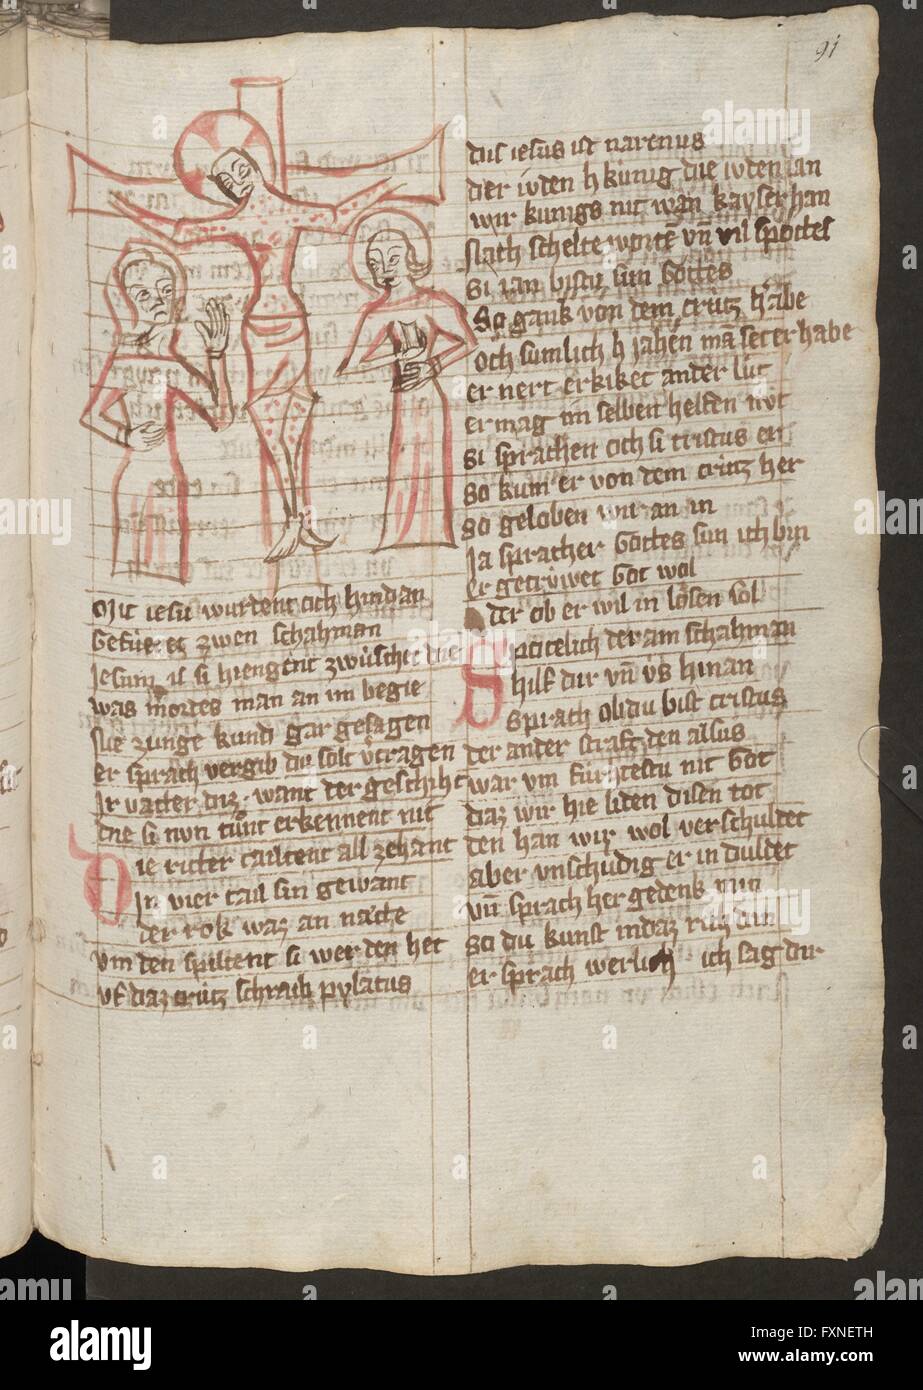 91
Mit iesu wurtent och hindan
Gefüeret zwen schahman
Jesum si hiengent zwüschet die
was mordes man an im begie
nie zunge kund gar gesagen
er sprach vergib die solt vtragen
Ir vatter diz want der geschiht
die si nvn tůnt erkennent nit
Die ritter tailtent all zehant
In vier tail sin gewant
der rok waz an nate
vm den spiltent si wer den het
vf daz crütz schraib pylatus
dis iesus ist narenus
der ivden künig die ivden ian
wir künigs nit wan kayser han
Nach schelte worte vn̄ vil spottes
Si ian bistu sun Gottes
So gank von dem crütz habe
Och sumlich iahen er habe
er nert erkiket ander lüt
er mag im selben helfen nvt
Si sprachen och si cristus er
So kum er von dem crütz her
So geloben wir an in
Ja sprach er Gottes sun ich bin
er getrvwet Got wol
der ob er wil in lösen sol
Spottelich der ain schahman
hilf dir vn̄ vs hinan
Sprach ob du bist cristus
der ander straft den alsus
war vm fürhtestu nit Got
daz wir hie liden disen tot
den han wir wol verschuldet
aber vnschudig er in duldet
vn̄ sprach her gedenk min
So du kunst in daz rich din
er sprach werlich ich sag dir
alamy
a
Image ID: FXNETH
www.alamy.com